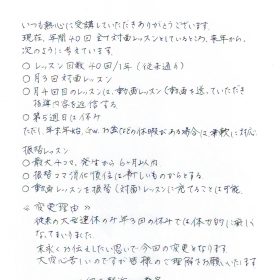 いつも熱心に受講していただきありがとうございます
現在、年間40回全て対面レッスンとしているところ、来年から、
次のように考えています。
○レッスン回数40回/1年(従来通り)
○月3回対面レッスン
○月4回目のレッスンは、動画レッスン(動画を送っていただき
指導内容を返信する
○第5週目は休み
ただし、年末年始、G.W、お盆などの休暇がある場合は柔軟に対応
振替レッスン
○最大4コマ、発生から6ヶ月以内
○振替コマ消化順位は新しいものからとする
○動画レッスンを振替(対面)レッスンに充てることは可能
≪変更理由≫
従来の大変連休の年3回の休みでは体力的に厳しく
なってまいりました
末永くお伝えしたい思いで今回の変更となります
大変心苦しいのですが皆様のご理解をお願いいたします